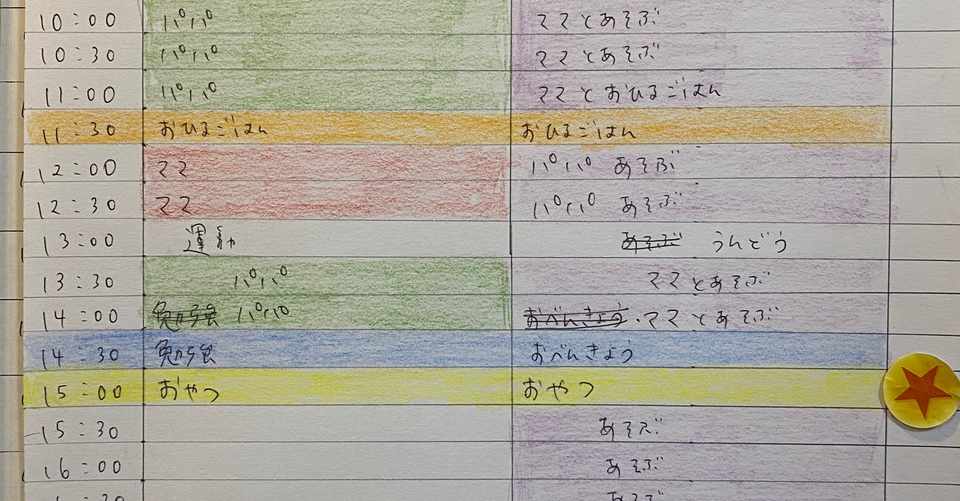 10:00 パパ ママとあそぶ
10:30 パパ ママとあそぶ
11:00 パパ ママとおひるごはん
11:30 おひるごはん おひるごはん
12:00 ママ パパ あそぶ
12:30 ママ パパ あそぶ
13:00 運動 あそぶ うんどう
13:30 パパ ママとあそぶ
14:00 勉強 パパ おべんきょう・ママとあそぶ
14:30 勉強 おべんきょう
15:00 おやつ おやつ
15:30 あそぶ
16:00 あそぶ
あそぶ